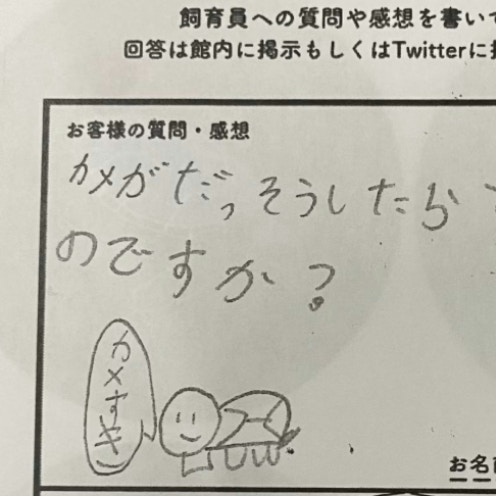 飼育員への質問や感想を書いて
回答は館内に掲示もしくはTwitterに
お客様の質問・感想
カメがだっそうしたら
のですか?
カメすき
お名